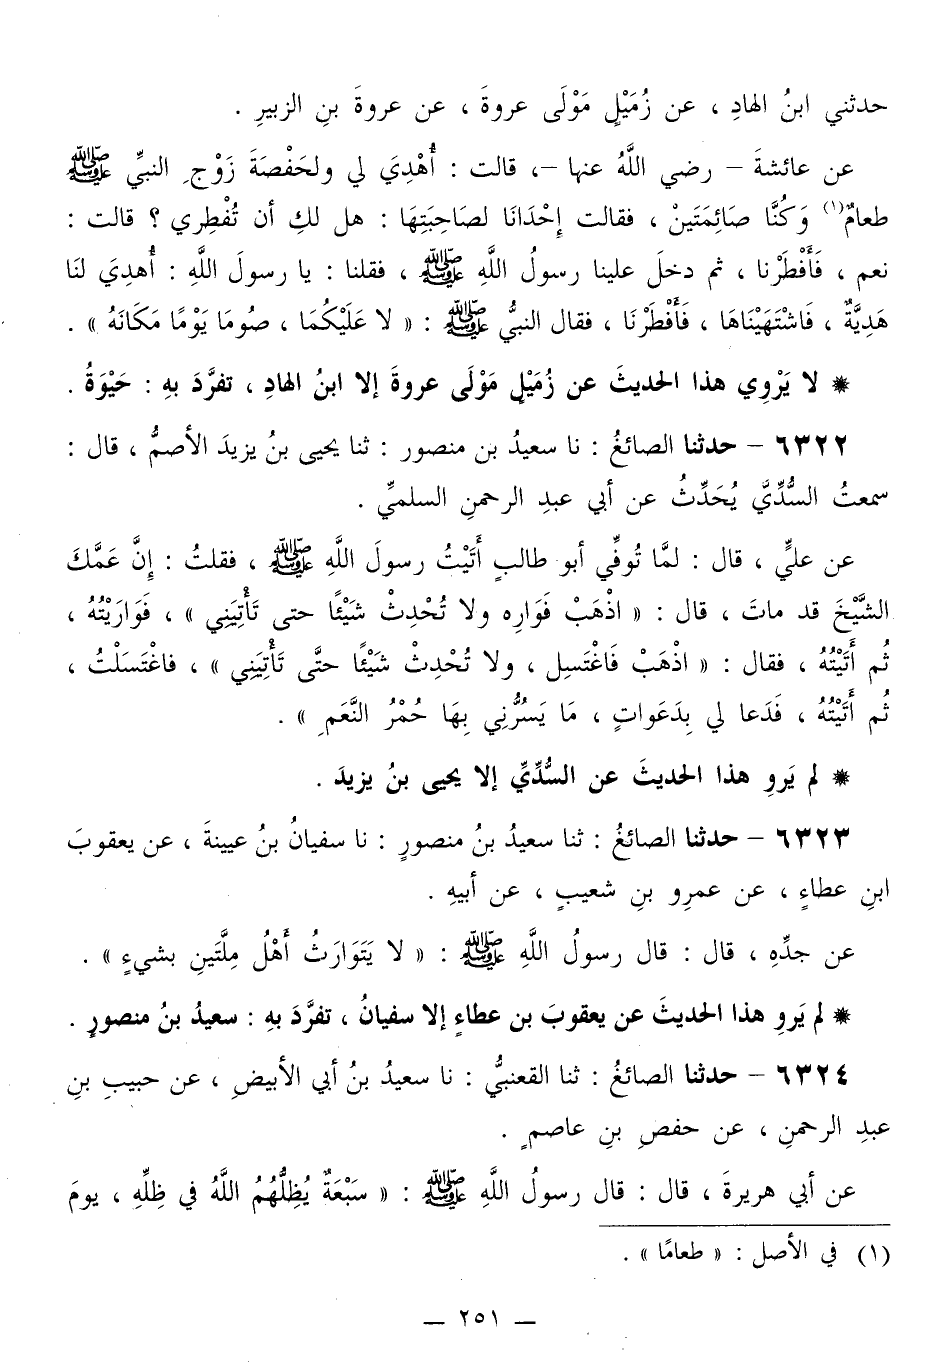 حدثني ابنُ الهادِ ، عن زُمَيْلٍ مَوْلَى عروةَ ، عن عروةَ بنِ الزبيرِ .
عن عائشةَ – رضي اللَّهُ عنها –، قالت : أُهْدِيَ لي ولحَفْصَةَ زَوْجِ النبيِّ ﷺ
طعامٌ(١) وَكُنَّا صَائِمَتَينْ ، فقالت إِحْدَانَا لصَاحِبَتِهَا : هل لكِ أن تُفْطِري ؟ قالت :
نعم ، فَأَفْطَرْنا ، ثم دخلَ علينا رسولُ اللَّهِ ﷺ ، فقلنا : يا رسولَ اللَّهِ : أُهدِيَ لنَا
هَدِيَّةٌ ، فَاشْتَهَيْنَاهَا ، فَأَفْطَرْنَا ، فقال النبيُّ ﷺ : « لا عَلَيْكُمَا ، صُومَا يَوْمًا مَكَانَهُ » .
* لا يَرْوِي هذا الحديثَ عن زُمَيْلٍ مَوْلَى عروةَ إلا ابنُ الهادِ ، تفرَّدَ بهِ : حَيْوَةُ .
٦٣٢٢ – حدثنا الصائغُ : نا سعيدُ بن منصور : ثنا يحيى بنُ يزيدَ الأصمُّ ، قال :
سمعتُ السُّدِّيَّ يُحَدِّثُ عن أبي عبدِ الرحمنِ السلميِّ .
عن عليٍّ ، قال : لمَّا تُوفِّي أبو طالبٍ أَتَيْتُ رسولَ اللَّهِ ﷺ ، فقلتُ : إِنَّ عَمَّكَ
الشَّيْخَ قد ماتَ ، قال : « اذْهَبْ فَوَارِه ولا تُحْدِثْ شَيْئًا حتى تَأْتِيَنِي » ، فَوَارَيْتُهُ ،
ثُم أَتَيْتُهُ ، فقال : « اذْهَبْ فَاغْتَسِل ، ولا تُحْدِثْ شَيْئًا حتَّى تَأْتِيَنِي » ، فاغْتَسَلْتُ ،
ثُم أَتَيْتُهُ ، فَدَعا لي بِدَعَواتٍ ، مَا يَسُرُّنِي بِهَا حُمْرُ النَّعَمِ » .
* لم يَروِ هذا الحديثَ عن السُّدِّيِّ إلا يحيى بنُ يزيدَ .
٦٣٢٣ – حدثنا الصائغُ : ثنا سعيدُ بنُ منصورٍ : نا سفيانُ بنُ عيينةَ ، عن يعقوبَ
ابنِ عطاءٍ ، عن عمرِو بنِ شعيبٍ ، عن أبيهِ .
عن جدِّهِ ، قال : قال رسولُ اللَّهِ ﷺ : « لا يَتَوَارَثُ أَهْلُ مِلَّتَينِ بشيءٍ » .
* لم يَروِ هذا الحديثَ عن يعقوبَ بن عطاءٍ إلا سفيانُ ، تفرَّدَ بهِ : سعيدُ بنُ منصورٍ .
٦٣٢٤ – حدثنا الصائغُ : ثنا القعنبيُّ : نا سعيدُ بنُ أبي الأبيضِ ، عن حبيبِ بنِ
عبدِ الرحمنِ ، عن حفصِ بنِ عاصمٍ .
عن أبي هريرةَ ، قال : قال رسولُ اللَّهِ ﷺ : « سَبْعَةٌ يُظِلُّهُمُ اللَّهُ في ظِلِّهِ ، يومَ
(١) في الأصل : « طعامًا » .
– ٢٥١ –